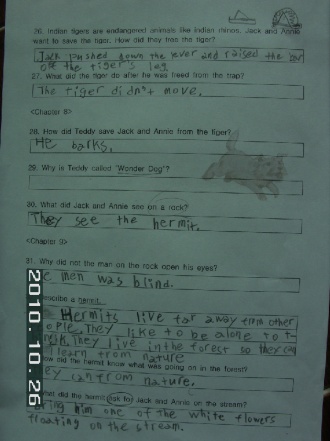 26. Indian tigers are endangered animals like Indian rhinos. Jack and Annie
want to save the tiger. How did they free the tiger?
Jack pushed down the lever and raised the bar
off the tiger's leg.
27. What did the tiger do after he was freed from the trap?
The tiger didn't move.
<Chapter 8>
28. How did Teddy save Jack and Annie from the tiger?
He barks.
29. Why is Teddy called "Wonder Dog"?
30. What did Jack and Annie see on a rock?
They see the hermit.
<Chapter 9>
31. Why did not the man on the rock open his eyes?
men was blind.
escribe a hermit.
Hermits live far away from other
ople. They like to be alone to t-
They live in the forest so they can
learn from nature
did the hermit know what was going on in the forest?
ey can from nature.
hat did the hermit ask to Jack and Annie on the stream?
bring him one of the white flowers
floating on the stream.
2010.10.26